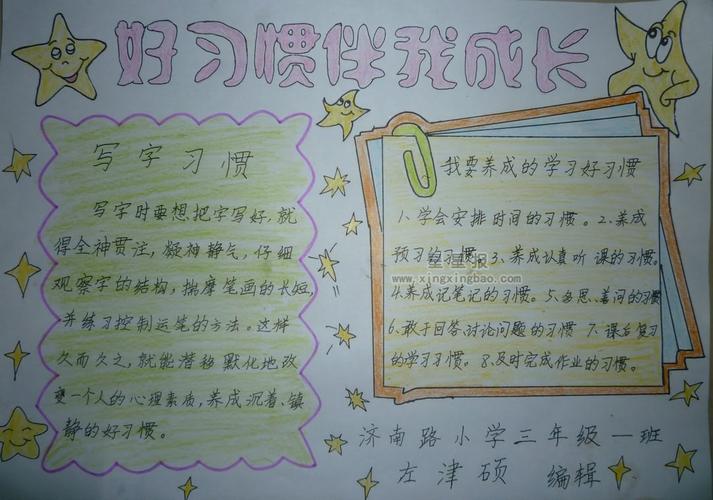 好习惯伴我成长
写字习惯
写字时要想把字写好,就
得全神贯注,凝神静气,仔细
观察字的结构,揣摩笔画的长短,
并练习控制运笔的方法。这样
久而久之,就能潜移默化地改
变一个人的心理素质,养成沉着、镇
静的好习惯。
我要养成的学习好习惯
1、学会安排时间的习惯。2、养成
预习的习惯。3、养成认真听课的习惯。
4、养成记笔记的习惯。5、多思、善问的习惯
6、敢于回答、讨论问题的习惯 7、课后复习
的学习习惯。8、及时完成作业的习惯。
星星报
www.xingxingbao.com
济南路小学三年级一班
左津硕 编辑